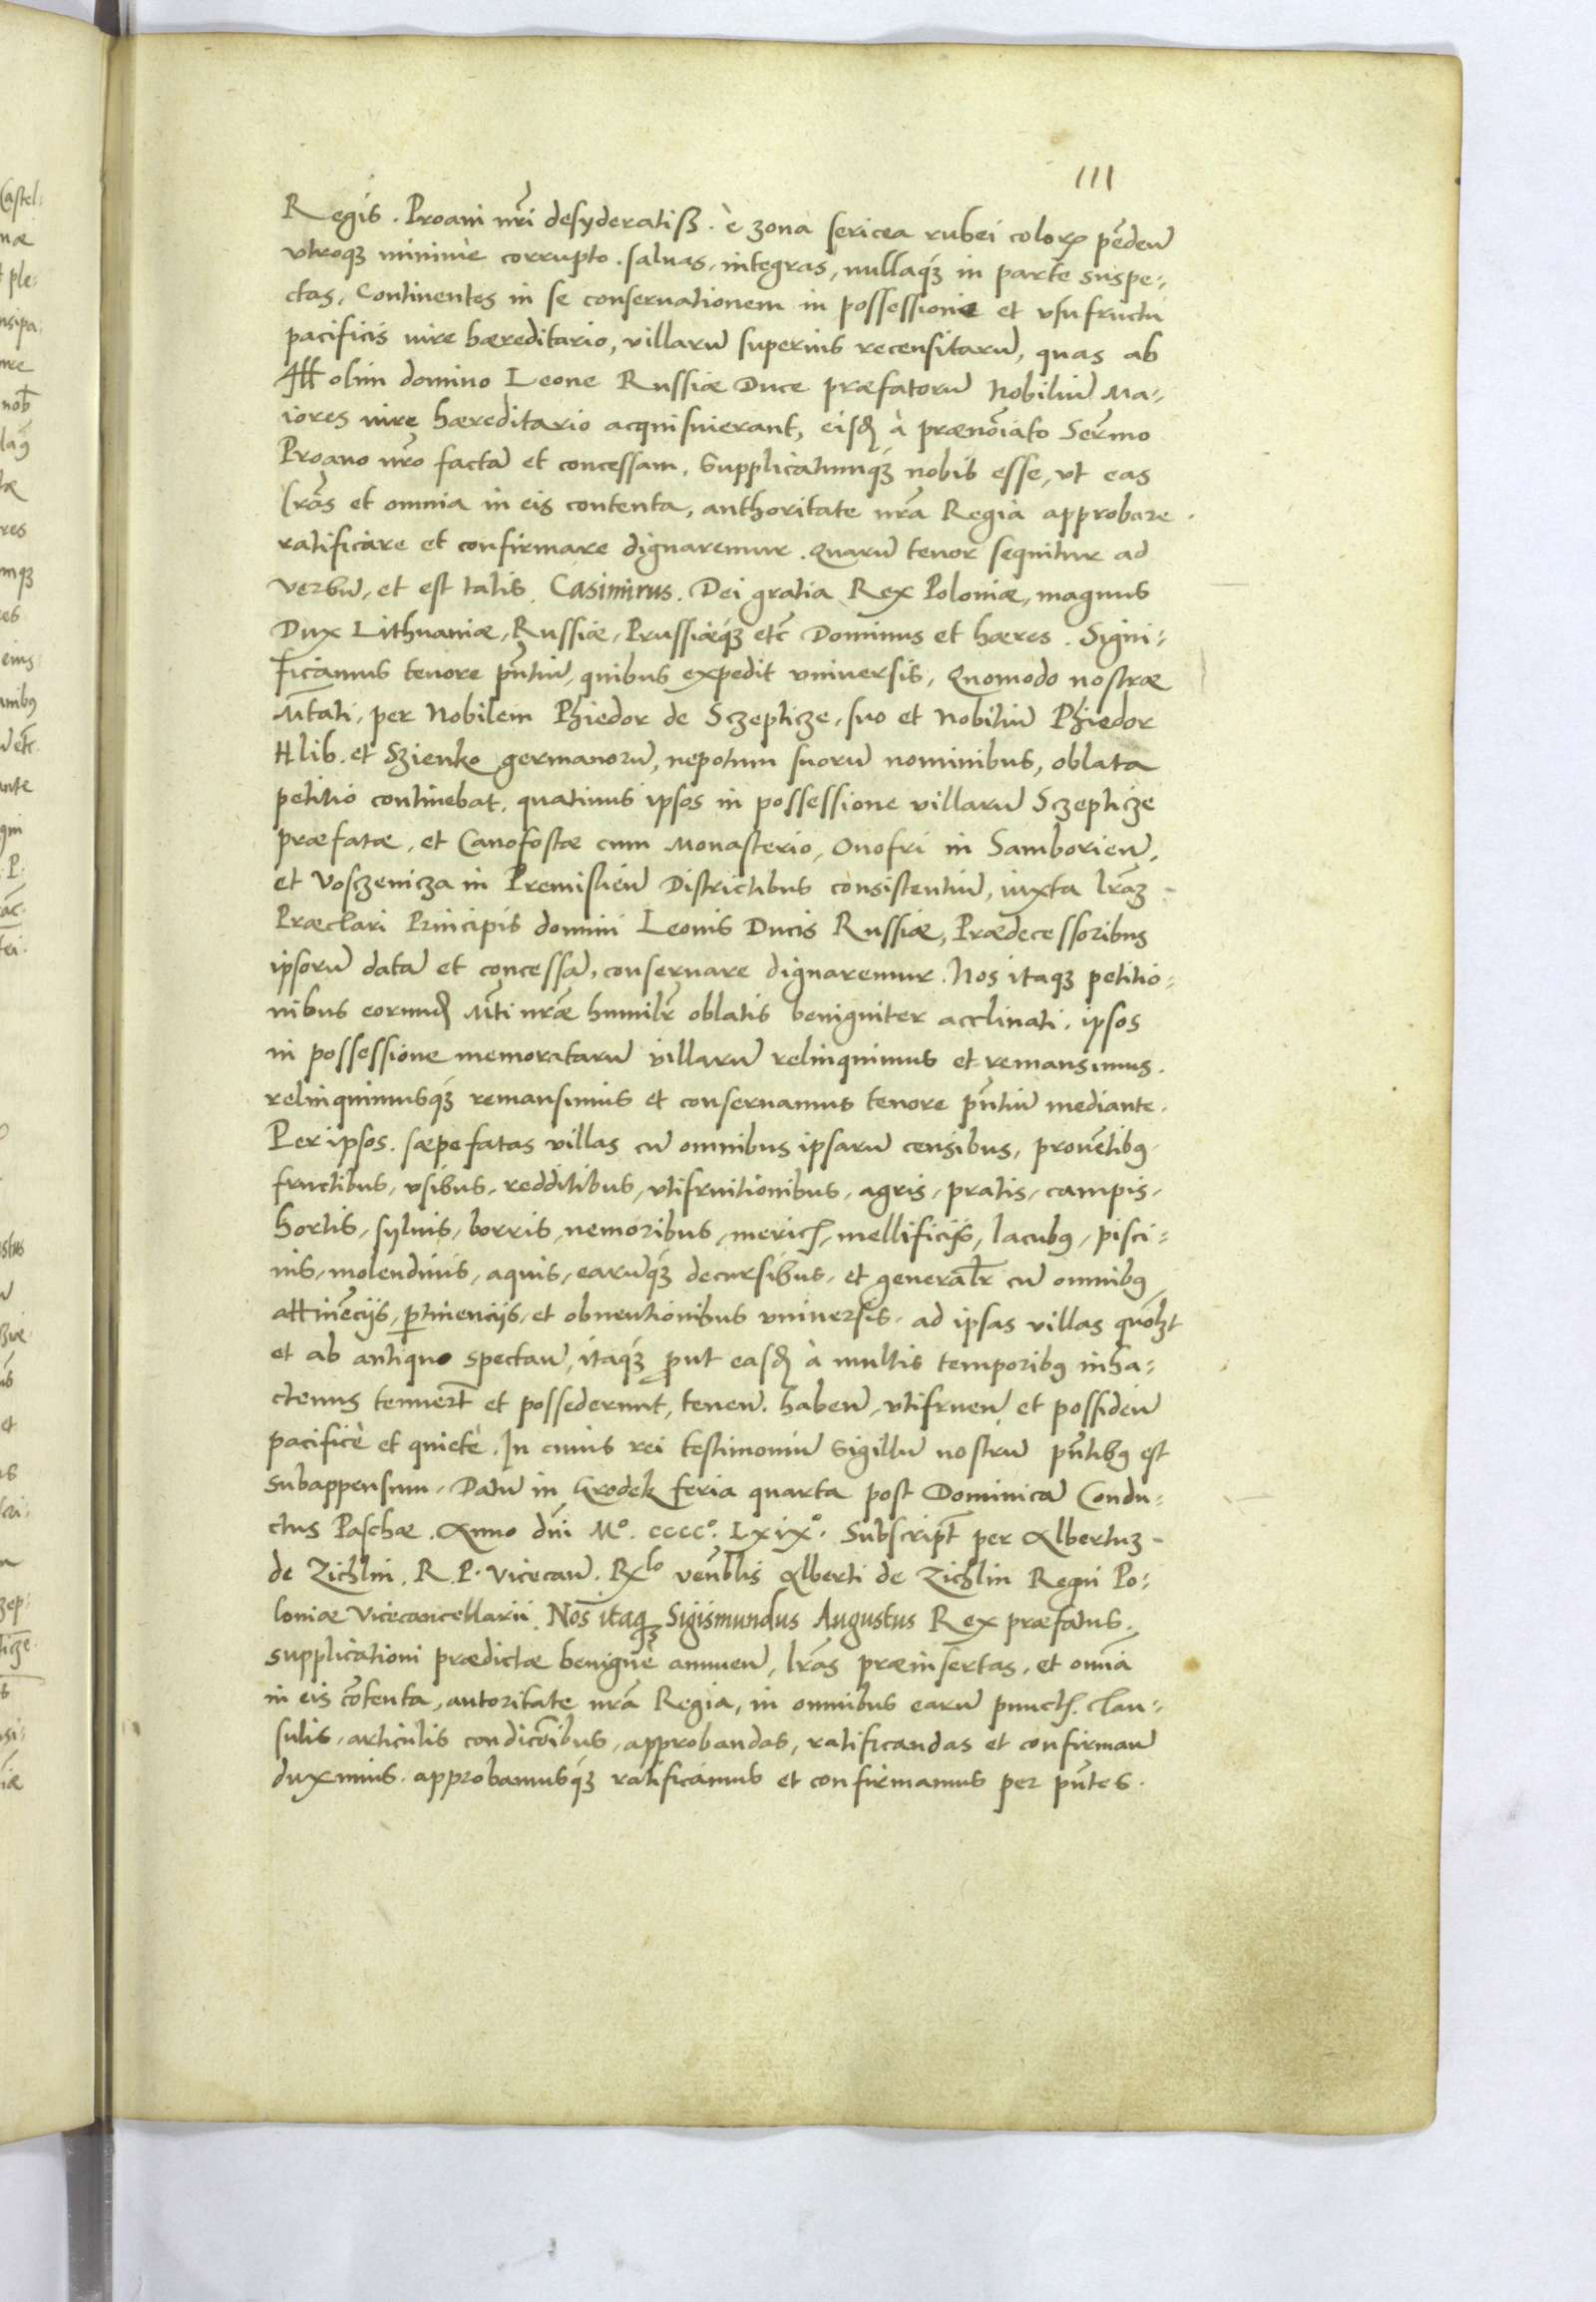 111
Regis. Proaui nr̃i desyderatiß. è zona sericea rubei colorꝭ pẽdeñ
vtroqꝫ minime corrupto. saluas, integras, nullaqꝫ́ in parte suspe-,
ctas, Continentes in se conseruationem in possessione et vsufructu
pacificis iure hæreditario, villarũ superius recensitarũ, quas ab
Ill olim domino Leone Russiæ Duce præfatorũ Nobiliũ Ma-,
iores iure hæreditario acquisuierant, eisđ à prænoĩato Ser̃mo
Proauo nr̃o factã et concessam, Supplicatumqꝫ́ nobis esse, vt eas
lr̃as et omnia in eis contenta, authoritate nr̃a Regia approbare.
ratificare et confirmare dignaremur. Quarũ tenor sequitur ad
verbũ, et est talis. Casimirus. Dei gratia Rex Poloniæ, magnus
Dux Lithuaniæ, Russiæ, Prussiæqꝫ́ etc̃ Dominus et hæres. Signi-,
ficamus tenore pñtiũ, quibus expedit vniversis, Quomodo nostræ
Mtati, per Nobilem Phiedor de Sczepticze, suo et Nobiliũ Phiedor
Hlib. et Szienko germanorũ, nepotum suorũ nominibus, oblata
petitio continebat, quatinus ipsos in possessione villarũ Sczepticze
præfatæ, et Canofostæ cum Monasterio, Onofri in Samborieñ,
et Vosczenicza in Premislieñ Districtibus consistentiũ, iuxta lr̃aꝫ
Præclari Principis domini Leonis Ducis Russiæ, Prædecessoribus
ipsorũ datã et concessã, conseruare dignaremur. Nos itaqꝫ petitio-,
nibus eorumđ Mti nr̃æ humilr̃ oblatis benigniter acclinati, ipsos
in possessione memoratarũ villarũ relinquimus et remansimus.
relinquimusqꝫ́ remansimus et conseruamus tenore pñtiũ mediante.
Per ipsos. sæpefatas villas cũ omnibus ipsarũ censibus, prouẽtibꝯ
fructibus, vsibus, redditibus, vtifruitionibus, agris, pratis, campis,
hortis, syluis, borris, nemoribus, mericꝭ, mellificijs, lacubꝯ, pisci-,
nis, molendinis, aquis, earũqꝫ́ decursibus, et generalr̃ cũ omnibꝯ
attinẽcijs, ꝑtinencijs, et obuentionibus vniversis, ad ipsas villas quõlꝫt
et ab antiquo spectañ, itaqꝫ́ ꝓut easđ à multis temporibꝯ inha-,
ctenus tenuert̃ et possederunt, teneñ. habeñ, vtifrueñ et possideñ
pacificè et quietè. In cuius rei testimoniũ Sigillũ nostrũ pñtibꝯ est
subappensum. Datũ in Grodek feria quarta post Dominicã Condu-,
ctus Paschæ. Anno dñi Mº. CCCCº. Lxixº. Subscript̃ per Albertuꝫ
de Zichlin. R. P. Vicecañ. Rxlo veñblis Alberti de Zichlin Regni Po-,
loniæ Vicecancellarii. Nos itaqꝫ Sigismundus Augustus Rex præfatus.
supplicationi prædictæ benignè annueñ, lr̃as præinsertas, et oñia
in eis cõtenta, autoritate nr̃a Regia, in omnibus earũ punctꝭ. clau-,
sulis, articulis condiciõibus, approbandas, ratificandas et confirmañ
duximus. approbamusqꝫ́ ratificamus et confirmamus per pñtes.